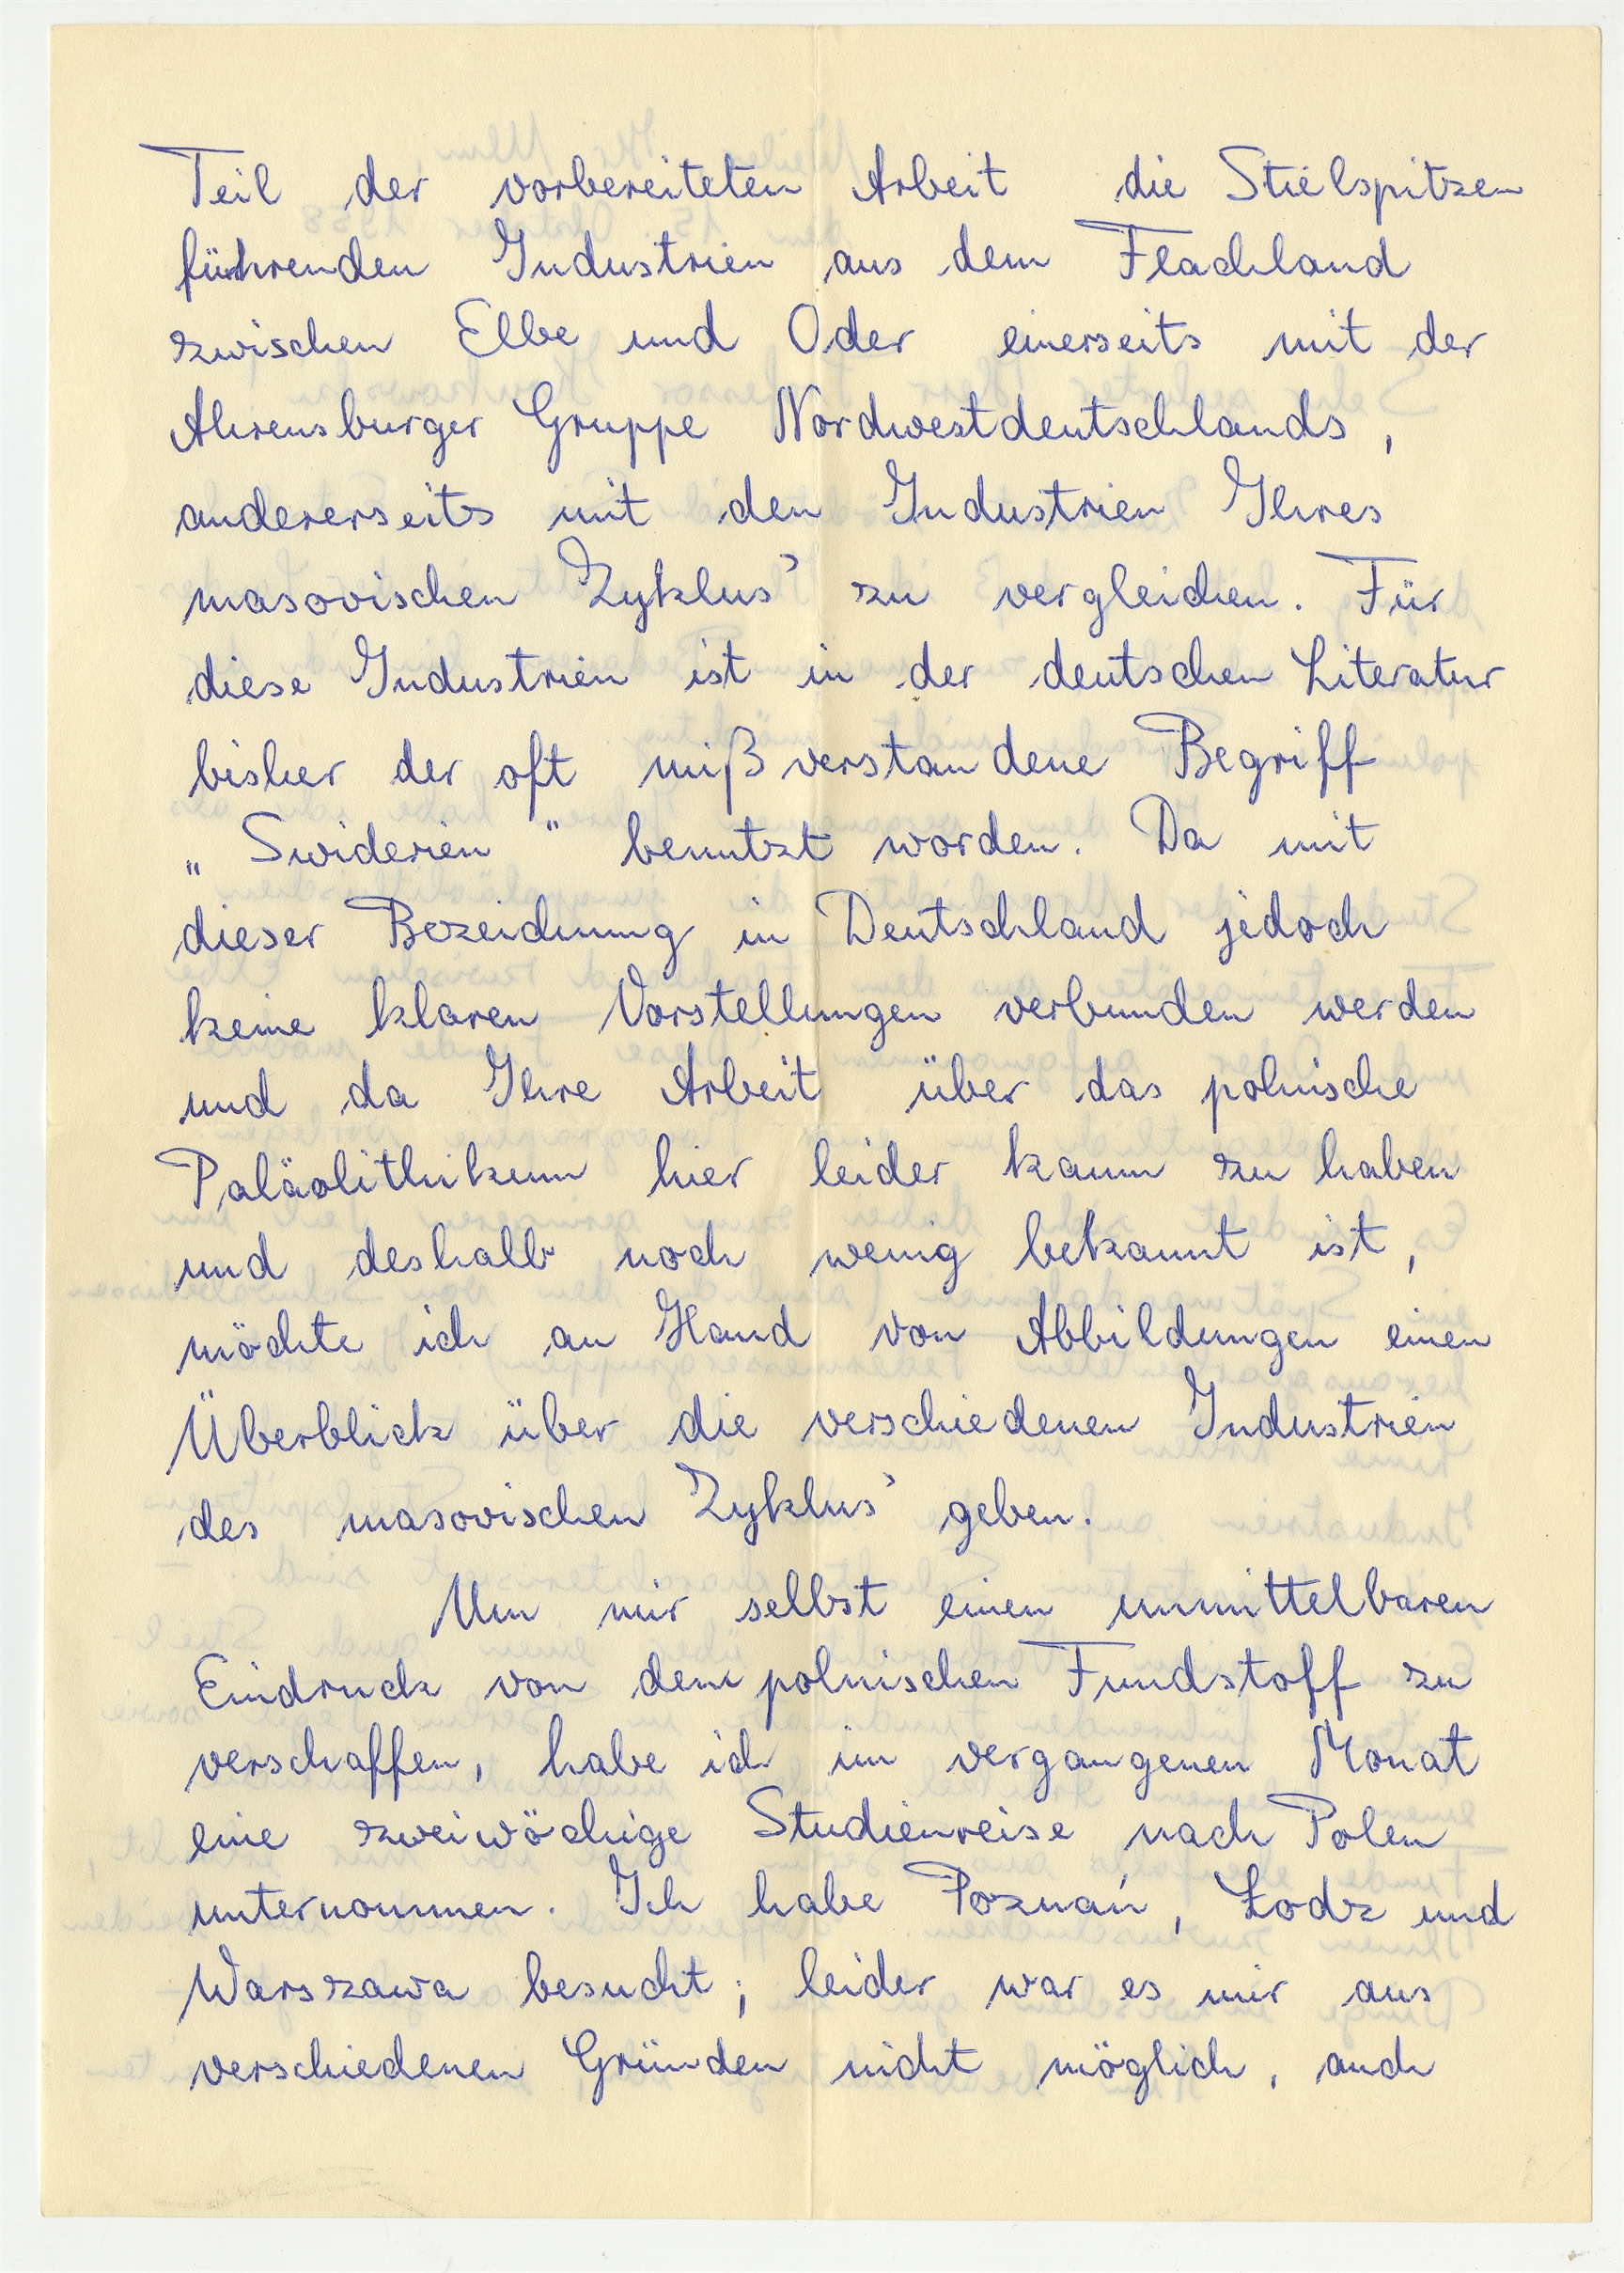 Teil der vorbereiteten Arbeit die Stielspitzen
führenden Industrien aus dem Flachland
zwischen Elbe und Oder einerseits mit der
Ahrensburger Gruppe Nordwestdeutschlands,
andererseits mit den Industrien Ihres
masovischen Zyklus' zu vergleichen. Für
diese Industrien ist in der deutschen Literatur
bisher der oft mißverstandene Begriff
„Swiderien" benutzt worden. Da mit
dieser Bezeichnung in Deutschland jedoch
keine klaren Vorstellungen verbunden werden
und da Ihre Arbeit über das polnische
Paläolithikum hier leider kaum zu haben
und deshalb noch wenig bekannt ist,
möchte ich an Hand von Abbildungen einen
Überblick über die verschiedenen Industrien
des masovischen Zyklus' geben.
Um mir selbst einen unmittelbaren
Eindruck von dem polnischen Fundstoff zu
verschaffen, habe ich im vergangenen Monat
eine zweiwöchige Studienreise nach Polen
unternommen. Ich habe Poznań, Łodz und
Warszawa besucht; leider war es mir aus
verschiedenen Gründen nicht möglich, auch